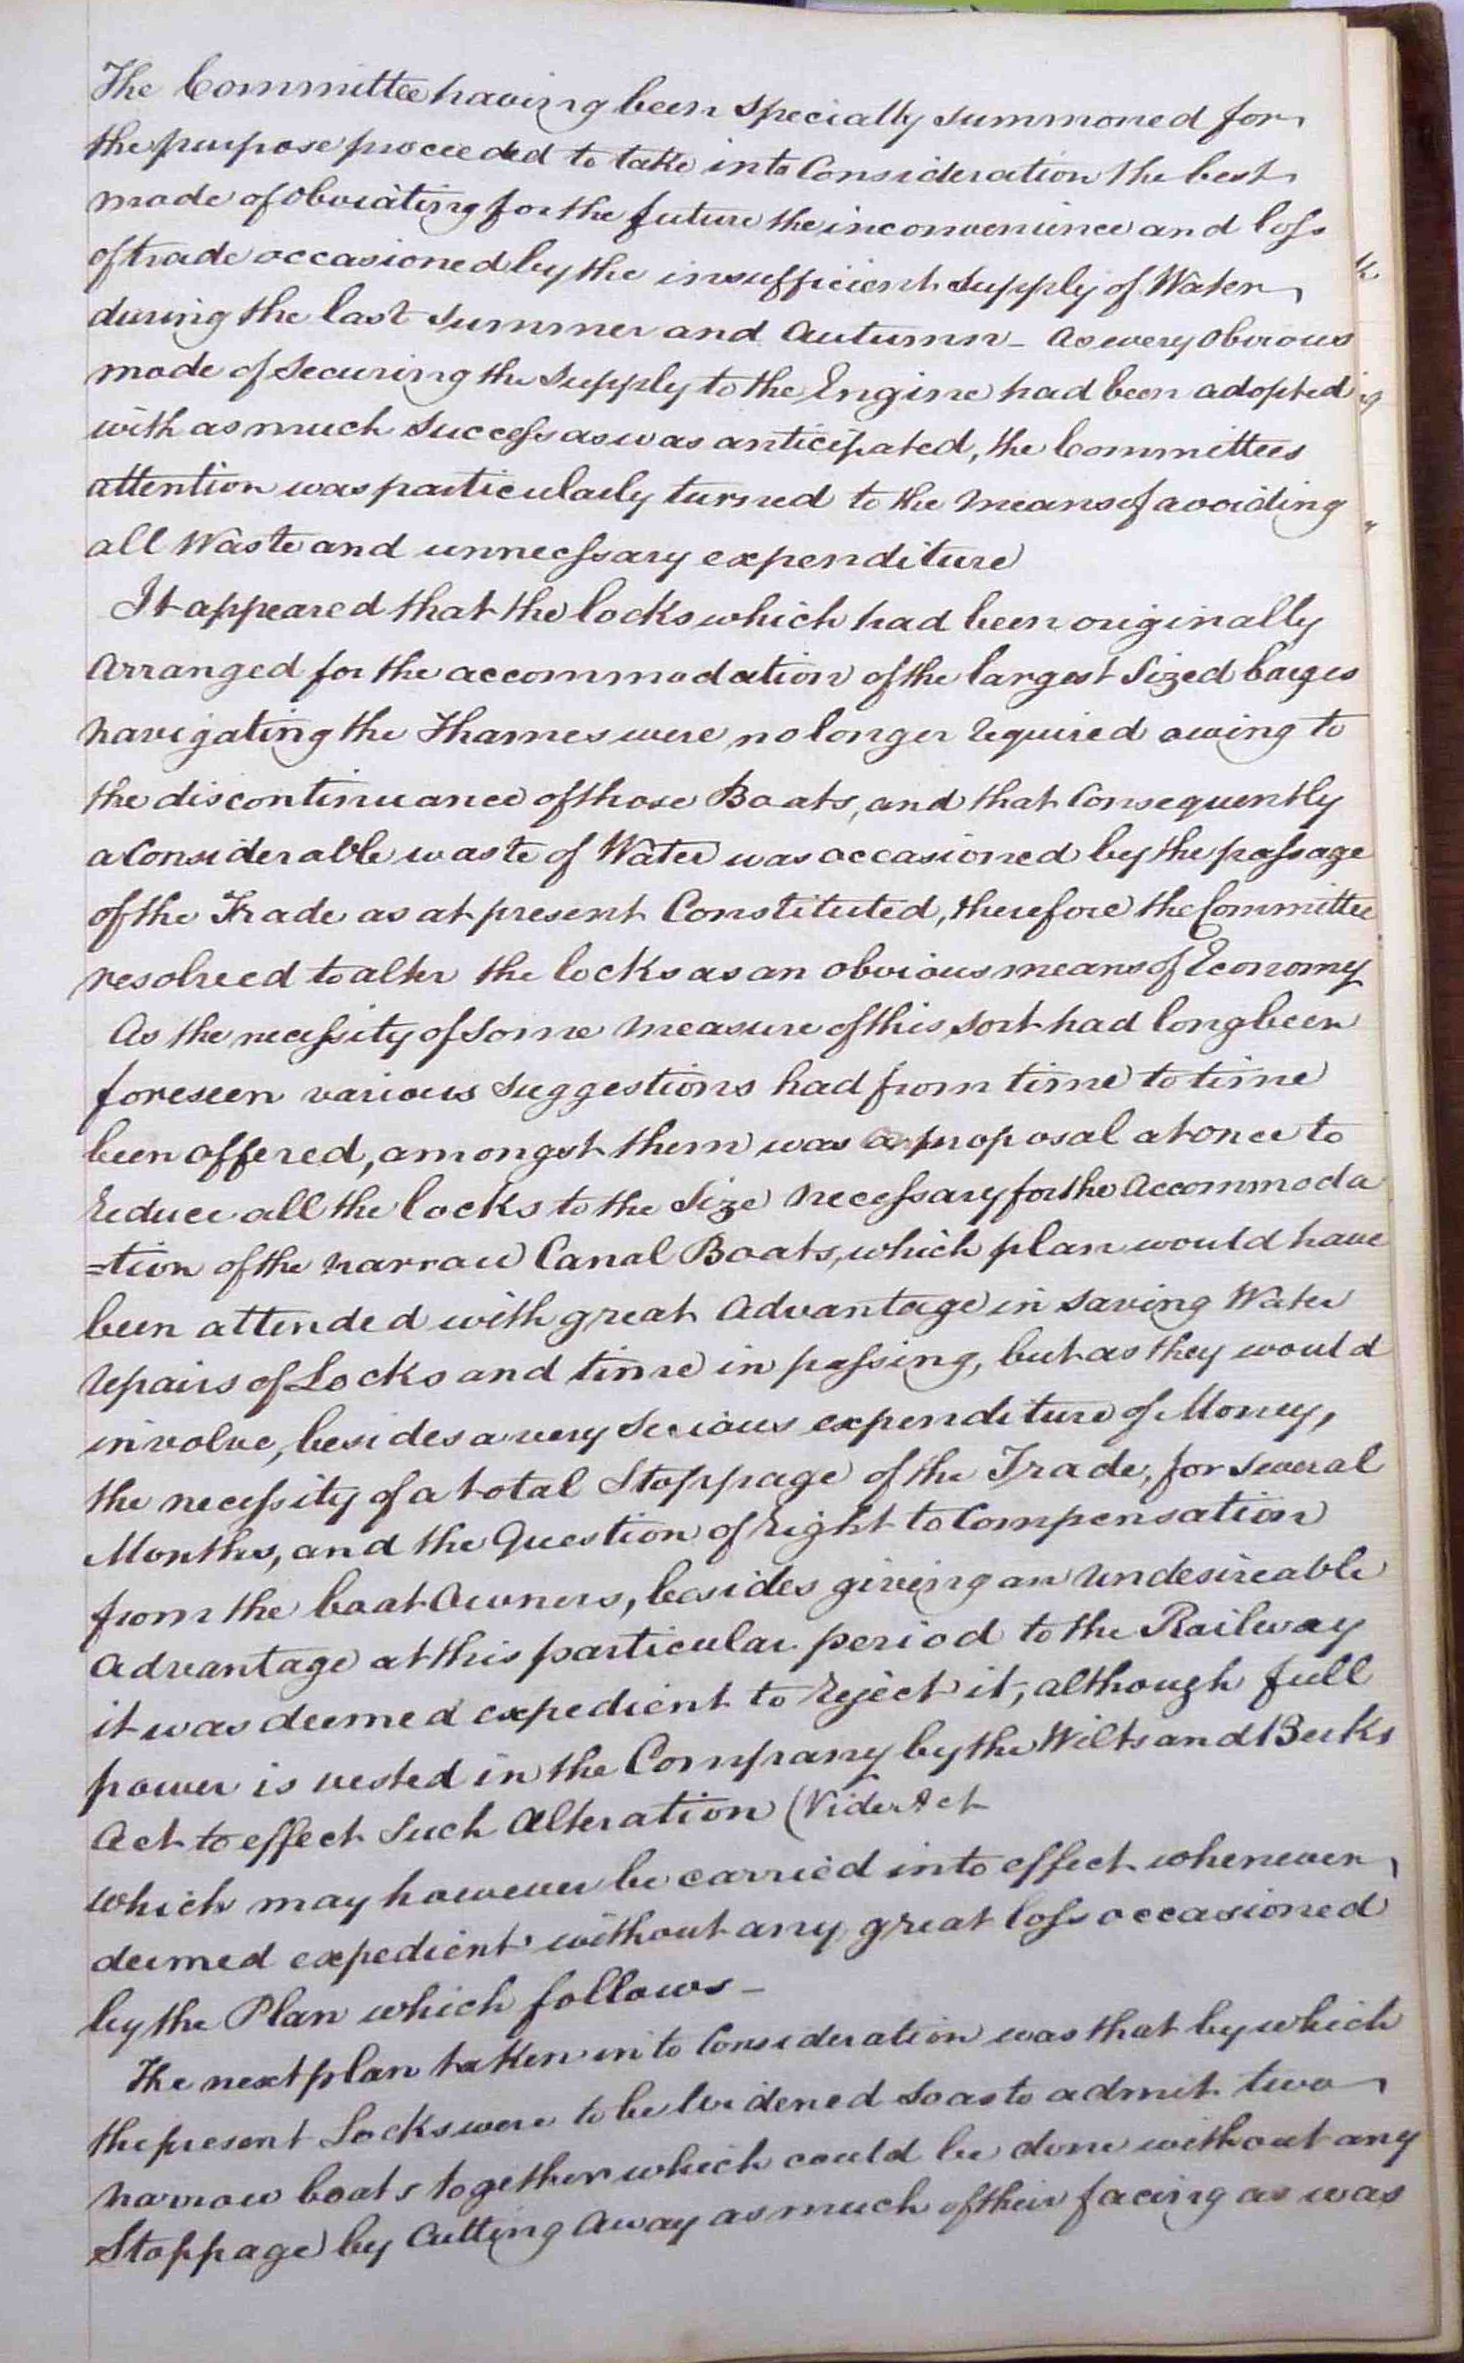 The Committee having been specially summoned for
the purpose proceeded to take into Consideration the best
mode of obviating for the future the inconvenience and loss
of trade occasioned by the insufficient supply of Water
during the last summer and Autumn - As every obvious
mode of securing the supply to the Engine had been adopted
with as much success as was anticipated, the Committees
attention was particularly turned to the means of avoiding
all Waste and unnecessary expenditure
It appeared that the locks which had been originally
Arranged for the accommodation of the largest Sized barges
navigating the Thames were no longer required owing to
the discontinuance of those Boats, and that Consequently
a Considerable waste of Water was occasioned by the passage
of the Trade as at present Constituted, therefore the Committee
resolved to alter the locks as an obvious means of Economy
As the necessity of some measure of this sort had long been
foreseen various suggestions had from time to time
been offered, amongst them was a proposal at once to
reduce all the locks to the Size necessary for the Accommoda
=tion of the narrow Canal Boats, which plan would have
been attended with great Advantage in saving Water
repairs of Locks and time in passing, but as they would
involve, besides a very serious expenditure of Money,
the necessity of a total Stoppage of the Trade, for several
Months, and the Question of right to Compensation
from the boat Owners, besides giving an undesireable
Advantage at this particular period to the Railway
it was deemed expedient to reject it, although full
power is vested in the Company by the Wilts and Berks
Act to effect such Alteration (Vide Act
which may however be carried into effect whenever
deemed expedient without any great loss occasioned
by the Plan which follows -
The next plan taken into Consideration was that by which
the present Locks were to be widened so as to admit two
narrow boats together which could be done without any
Stoppage by Cutting away as much of their facing as was